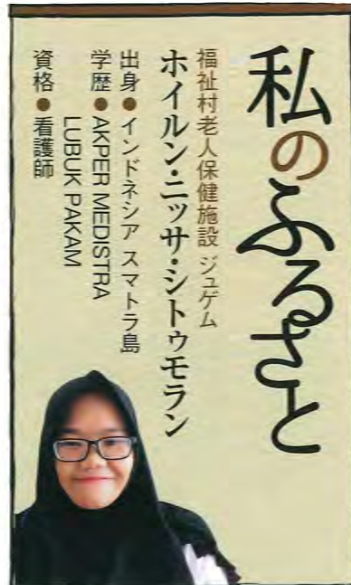 私のふるさと
福祉村老人保健施設 ジュゲム
ホイルン・ニッサ・シトゥモラン
出身●インドネシア スマトラ島
学歴●AKPER MEDISTRA
LUBUK PAKAM
資格●看護師